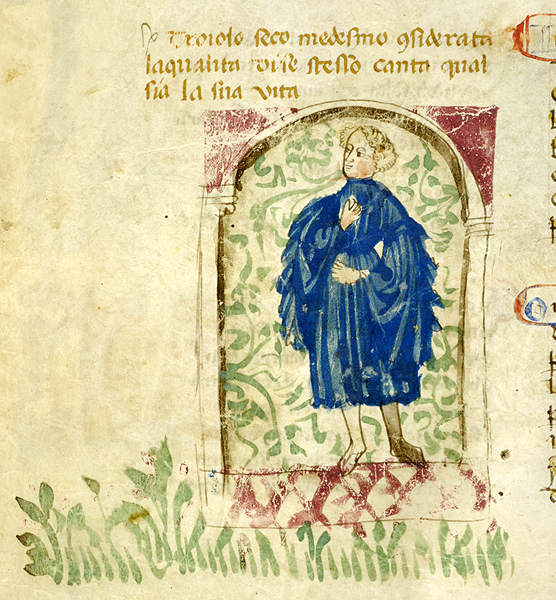 Troiolo seco medesmo ꝯsiderata
la qualita di se stesso canta qual
sia la sua vita